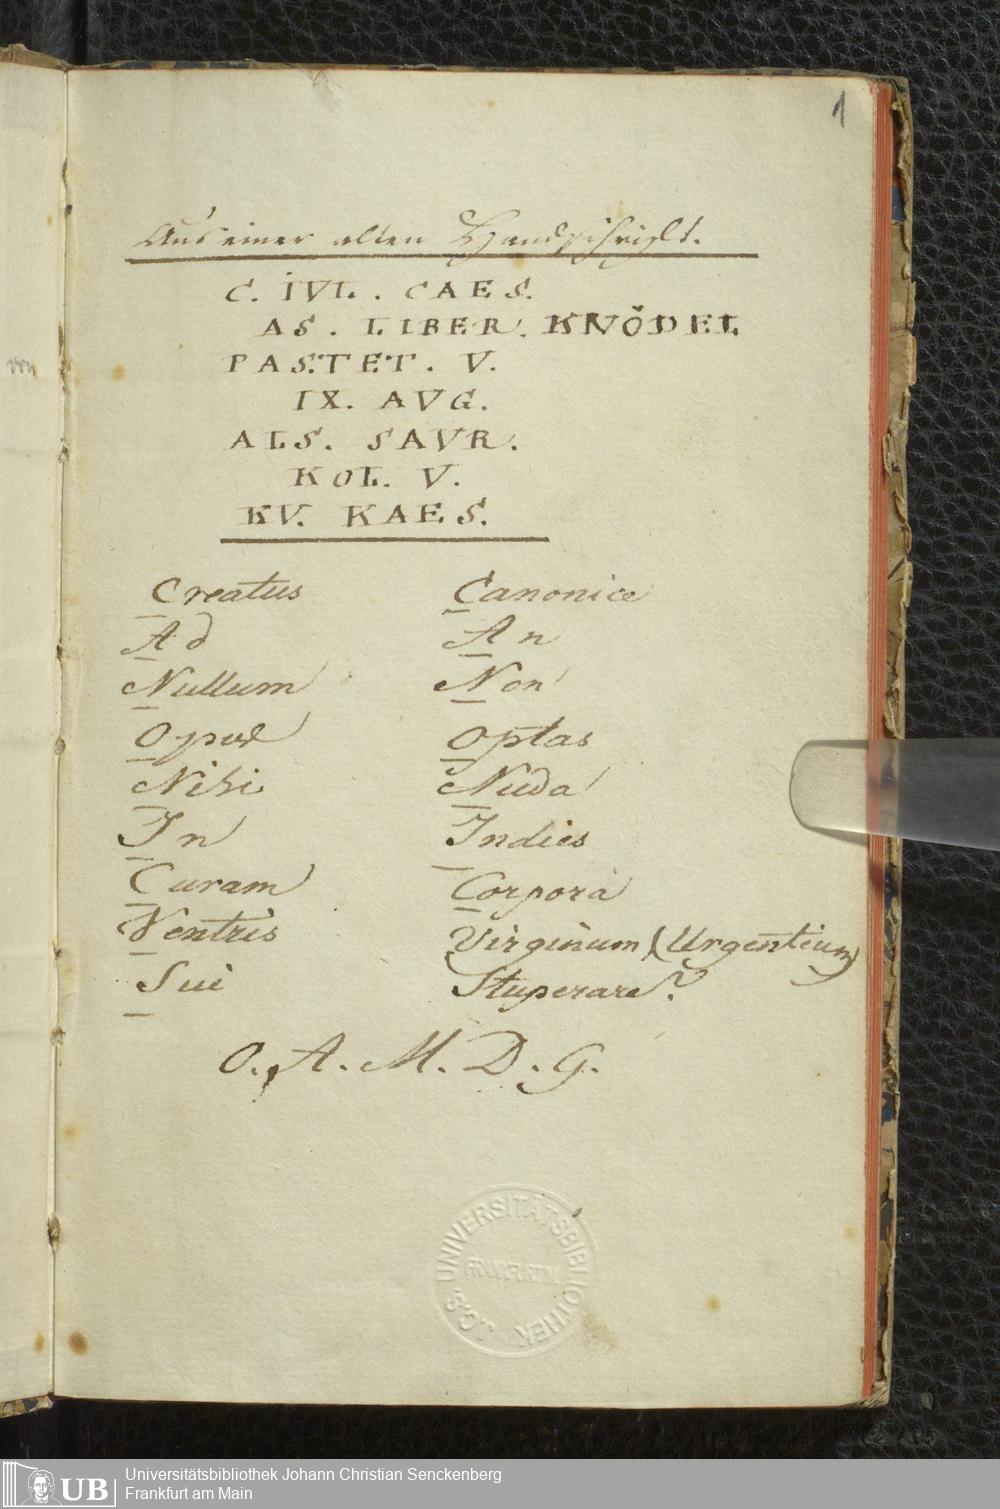 1
Aus einer alten Handschrift.
C. IVL. CAES.
AS. LIBER. KNÖDEL
PASTET. V.
IX. AVG.
ALS. SAVR.
KOL. V.
KV. KAES.
Creatus Canonice
Ad An
Nullum Non
Opus Optas
Nisi Nuda
In Indies
Curam Corpora
Ventris Virginum (Urgentium)
Sui Stuperare?
O. A. M. D. G.
UNIVERSITÄTSBIBLIOTHEK
J.C.S.
FRANKFURT M.
UB
Universitätsbibliothek Johann Christian Senckenberg
Frankfurt am Main